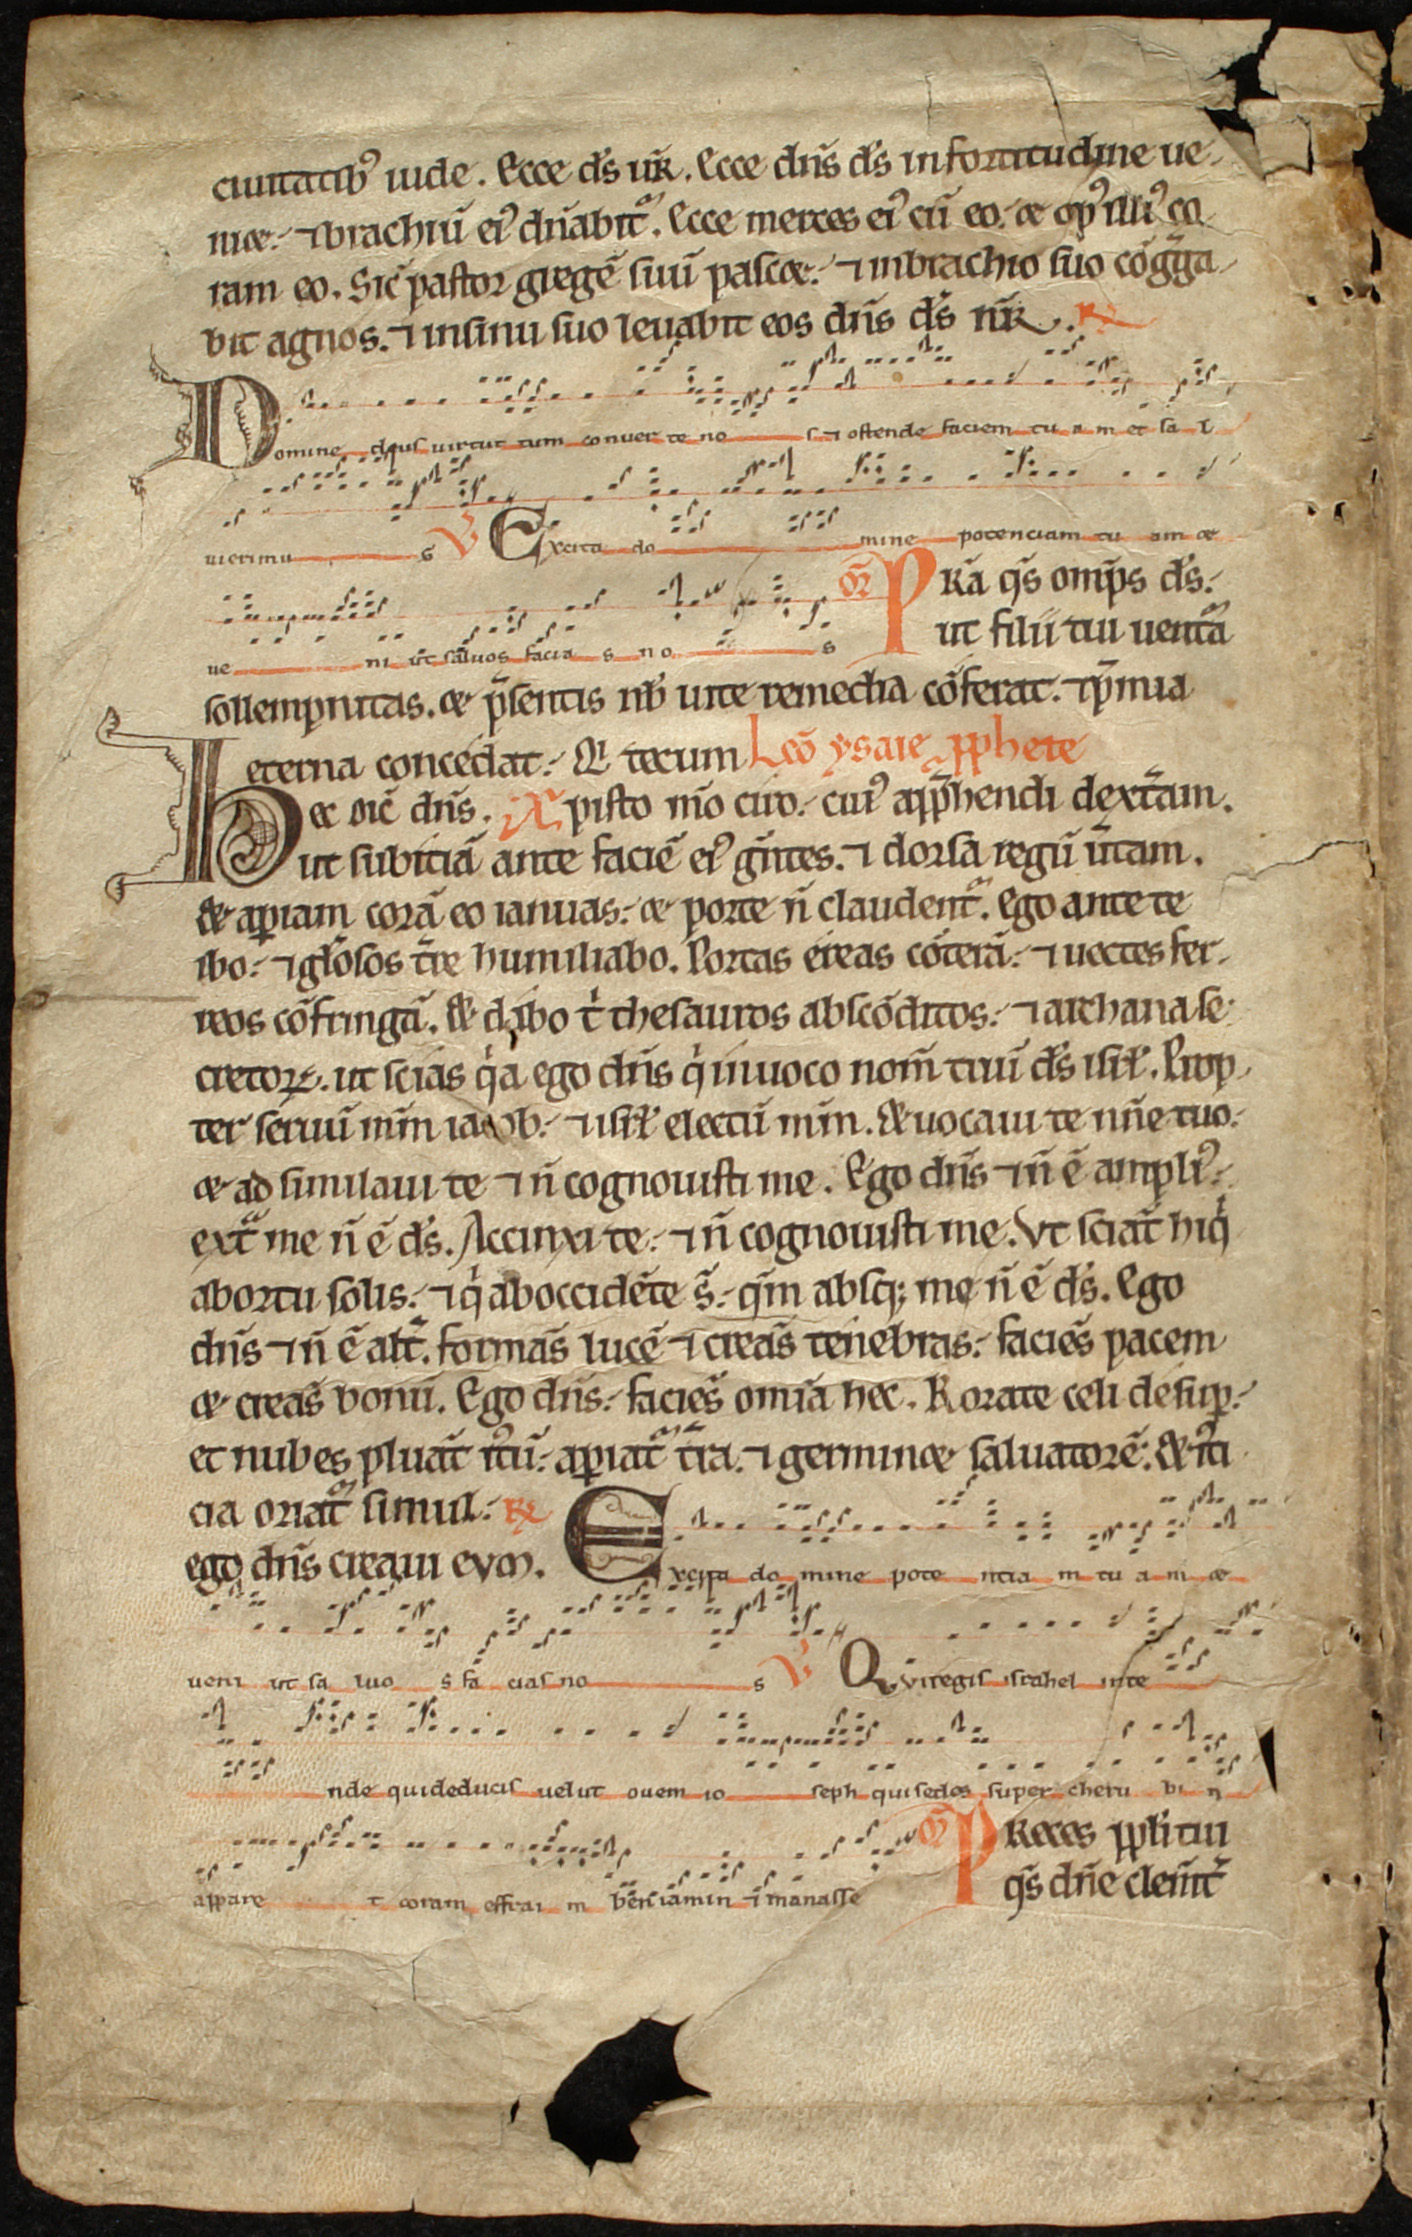 ciuitatibꝰ iude. Ecce ds̄ ur̄. Ecce dn̄s ds̄ in fortitudine ue
niet. ⁊ brachiū eiꝰ dn̄abit᷑. Ecce merces eiꝰ cū eo. et opꝰ illiꝰ co
ram eo. Sic̄ pastor gregē suū pascet. ⁊ in brachio suo cōgͣga
bit agnos. ⁊ in sinu suo leuabit eos dn̄s ds̄ nr̄. ℟
Domine deus uirtut tum conuer te no s ⁊ ostende faciem tu a m et sa l
uierimu s ℣ Excita do mine potenciam tu am et
ue ni ut saluos facia s no s
or̄ PRā qs̄ omp̄s ds̄.
ut filii tui uentͣa
sollempnitas. et p̄sentis nb̄ uite remedia cōferat. ⁊ p̄mia
eterna concedat. Qi tecum Lec̄o ysaie ꝓphete
Hec dic̄ dn̄s. Xpisto mō ciro. cuiꝰ app̄hendi dext̄am.
ut subiciā ante faciē eiꝰ gn̄tes. ⁊ dorsa regū ūtam.
et aꝑiam corā eo ianuas. et porte n̄ claudent᷑. Ego ante te
ibo. ⁊ gl̄osos t̄re humiliabo. Portas ereas cōterā. ⁊ uectes fer
reos cōfringā. et dabo tͥ thesauros abscōditos. ⁊ archana se
cretoꝝ. ut scias qͥa ego dn̄s qͥ inuoco nom̄ tuū ds̄ isrł. Prop
ter seruū mm̄ iacob. ⁊ isrł electū mm̄. et uocaui te nn̄e tuo.
et ad similaui te ⁊ n̄ cognouisti me. Ego dn̄s ⁊ n̄ ē ampliꝰ.
extͣ me n̄ ē ds̄. Accinxi te. ⁊ n̄ cognouisti me. Vt sciāt hi qͥ
ab ortu solis. ⁊ qͥ ab occidēte s̄. qm̄ absqꝫ me n̄ ē ds̄. Ego
dn̄s ⁊ n̄ ē alt̄. formās lucē ⁊ creās tenebras. faciēs pacem
et creās bonū. Ego dn̄s. faciēs omīa hec. Rorate celi desuꝑ.
et nubes pluāt iꝰtū. aꝑiat᷑ t̄ra. ⁊ germinet saluatorē. et iꝰti
cia oriat᷑ simul. ℟
ego dn̄s creaui eum.
Excita do mine pote ntia m tu a m et
ueni ut sa luo s fa cias no s ℣ Qui regis israhel inte
nde qui deducis uelut ouem io seph qui sedes super cheru bi n
appare t coram effrai m beniamin ⁊ manasse
or̄ PReces ppl̄i tui
qs̄ dn̄e clem̄t᷑